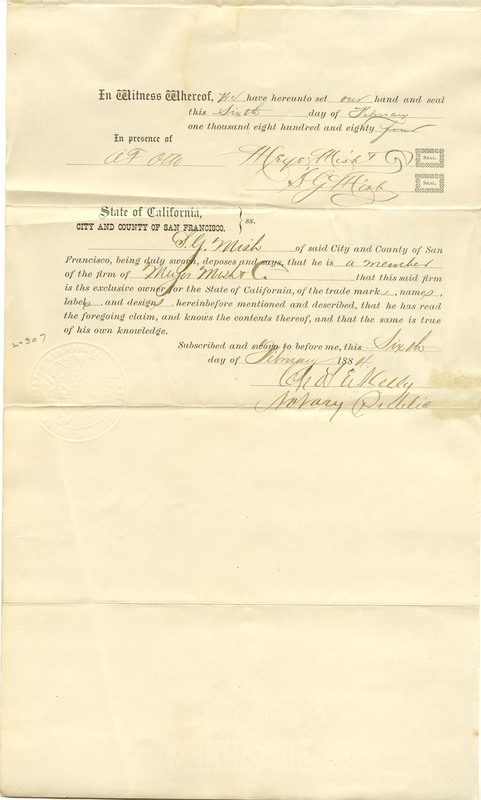 In Witness Whereof, We have hereunto set our hand and seal
this Sixth day of February
one thousand eight hundred and eighty four
In presence of
A F Otto Meyer Mish & C SEAL.
S. G. Mish SEAL.
State of California,
CITY AND COUNTY OF SAN FRANCISCO. } ss.
S. G. Mish of said City and County of San
Francisco, being duly sworn, deposes and says, that he is a member
of the firm of Meyer Mish & C. that this said firm
is ths exclusive owner for the State of California, of the trade marks, names,
labels and designs hereinbefore mentioned and described, that he has read
the foregoing claim, and knows the contents thereof, and that the same is true
of his own knowledge.
2307
Subscribed and sworn to before me, this Sixth
day of February 1884
E. Kelly
Notary Public